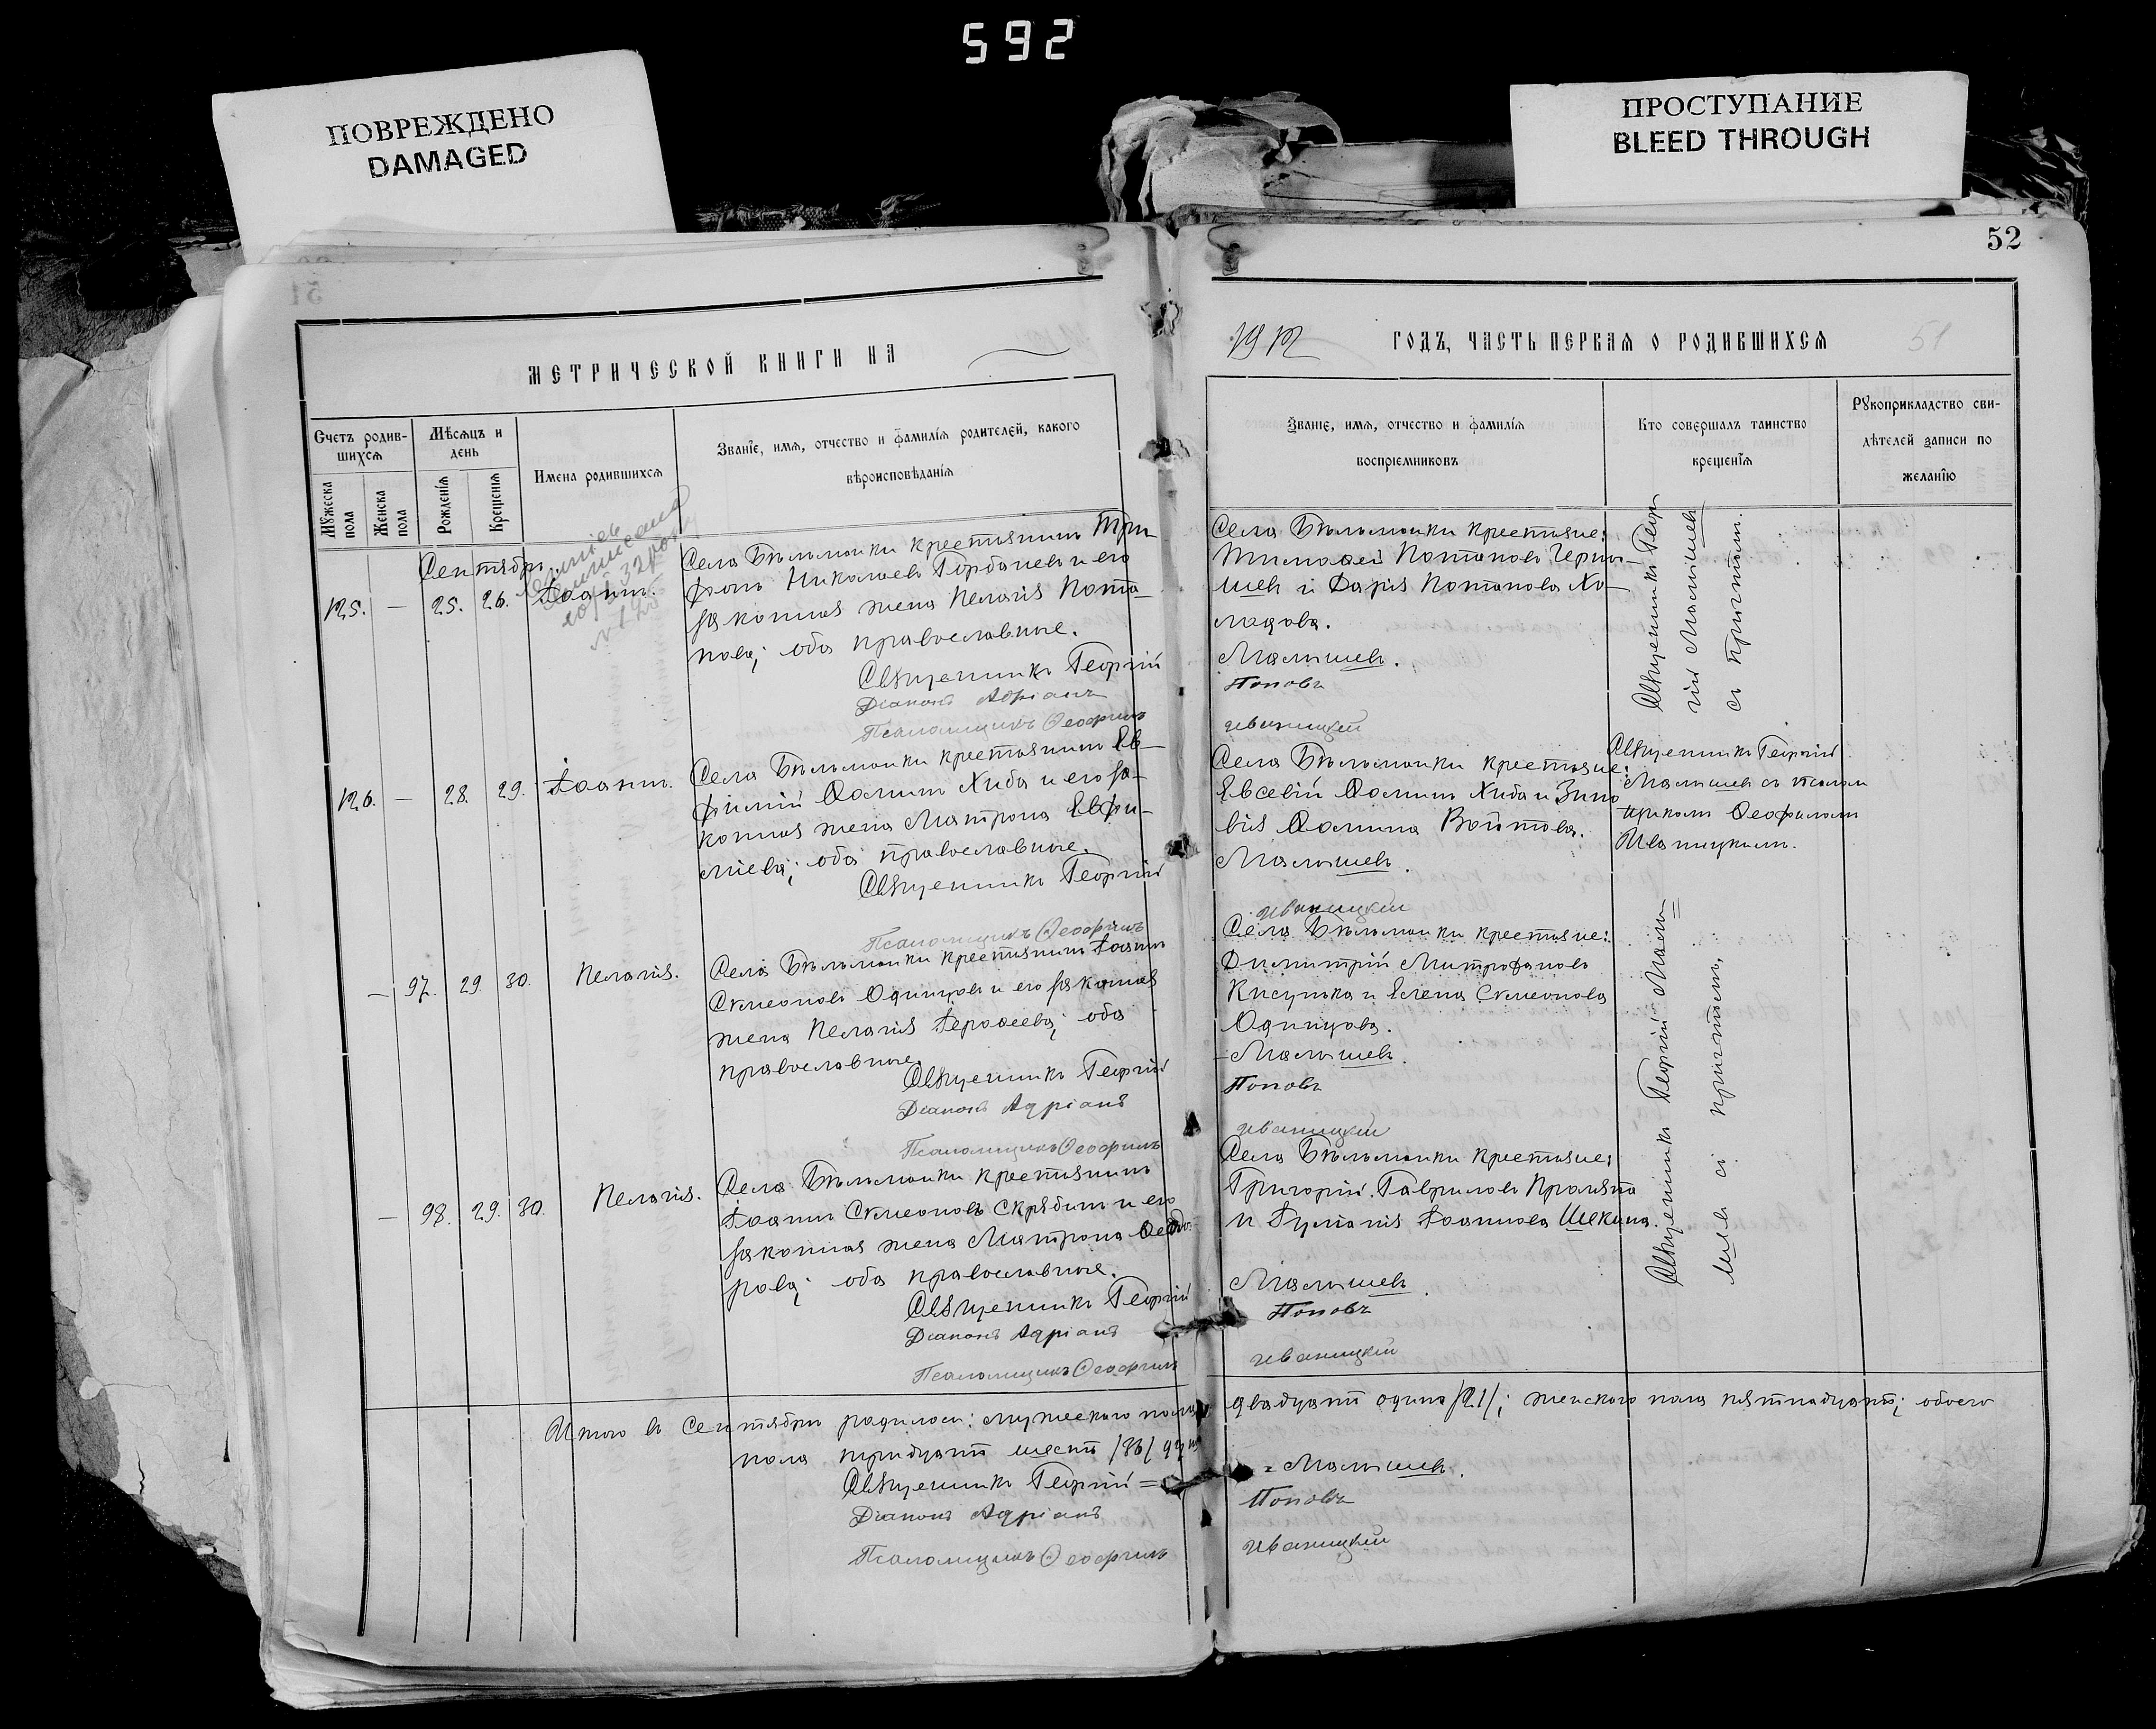 592
ПОВРЕЖДЕНО
DAMAGED
ПРОСТУПАНИЕ
BLEED THROUGH
52
51
МЕТРИЧЕСКОЙ КНИГИ НА
1912 ГОДЪ, ЧАСТЬ ПЕРВАЯ О РОДИВШИХСЯ
51
Счетъ родив-
шихся
Мужеска пола
Женска пола
Мѣсяцъ и
день
Рожденія
Крещенія
Имена родившихся
Званїе, имя, отчество и фамилія родителей, какого
вѣроисповѣданія
Званїе, имя, отчество и фамилія
воспріемниковъ
Кто совершалъ таинство
крещенїя
Рукоприкладство сви-
дѣтелей записи по
желанїю
Сентябрь.
125. — 25. 26. Іоаннъ.
Села Бѣльманки крестьянинъ Три-
фонъ Николаевъ Горбачевъ и его
законная жена Пелагія Пота-
пова; оба православные.
Священникъ Георгій
Діаконъ Адріанъ
Псаломщикъ Ѳеофилъ
Села Бѣльманки крестьяне:
Тимоѳей Потаповъ Черны-
шев и Дарія Потапова Хо-
лодова.
Малышевъ.
Поповъ
Иваницкій
Священникъ Геор-
гій Малышевъ
съ причтомъ.
126. — 28. 29. Іоаннъ.
Села Бѣльманки крестьянинъ Ев-
фимій Ѳоминъ Хиба и его за-
конная жена Матрона Евфи-
міева; оба православные.
Священникъ Георгій
Псаломщикъ Ѳеофилъ
Села Бѣльманки крестьяне:
Евсевій Ѳоминъ Хиба и Зино
вія Ѳомина Войтова.
Малышевъ.
Иваницкій
Священникъ Георгій
Малышевъ съ псалом
щикомъ Ѳеофиломъ
Иваницкимъ.
— 97. 29. 30. Пелагія.
Села Бѣльманки крестьянинъ Іоаннъ
Симеоновъ Одинцовъ и его законная
жена Пелагія Іероѳеева; оба
православные.
Священникъ Георгій
Діаконъ Адріанъ
Псаломщикъ Ѳеофилъ
Села Бѣльманки крестьяне:
Димитрій Митрофановъ
Кисулька и Елена Симеонова
Одинцова.
Малышевъ.
Поповъ
Иваницкій
Священникъ Георгій Малы=
шевъ съ причтомъ.
— 98. 29. 30. Пелагія.
Села Бѣльманки крестьянинъ
Іоаннъ Симеоновъ Скрябинъ и его
законная жена Матрона Ѳеодо-
рова; оба православные.
Священникъ Георгій
Діаконъ Адріанъ
Псаломщикъ Ѳеофилъ
Села Бѣльманки крестьяне:
Григорій Гавриловъ
и Іуліанія Іоаннова Шекина.
Малышевъ.
Поповъ
Иваницкій
Итого въ Сентябрѣ родилось: мужескаго пола двадцать одинъ /21/; женскаго пола пятнадцать; обоего
пола тридцать шесть /36/ душъ
Священникъ Георгій =
= Малышевъ.
Діаконъ Адріанъ
Поповъ
Псаломщикъ Ѳеофилъ
Иваницкій